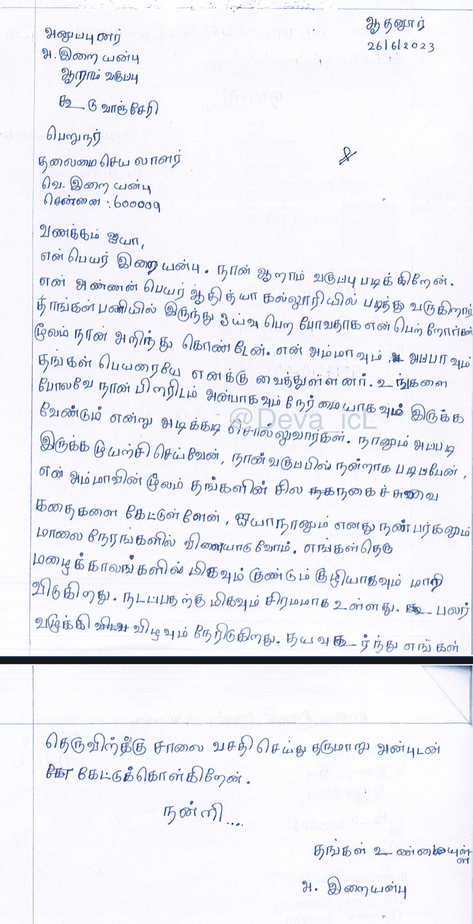 ஆதனூர்
26/6/2023
அனுப்புனர்
அ. இறையன்பு
ஆறாம் வகுப்பு
கூடுவாஞ்சேரி
பெறுநர்
தலைமை செயலாளர்
வெ. இறையன்பு
சென்னை : 600009
வணக்கம் ஐயா,
என் பெயர் இறையன்பு. நான் ஆறாம் வகுப்பு படிக்கிறேன்.
என் அண்ணன் பெயர் ஆதித்யா கல்லூரியில் படித்து வருகிறார்
தாங்கள் பணியில் இருந்து ஓய்வு பெற போவதாக என் பெற்றோர்கள்
மூலம் நான் அறிந்து கொண்டேன். என் அம்மாவும், அப்பாவும்
தங்கள் பெயரையே எனக்கு வைத்துள்ளனர். உங்களை
போலவே நான் பிறரிடம் அன்பாகவும் நேர்மையாகவும் இருக்க
வேண்டும் என்று அடிக்கடி சொல்லுவார்கள். நானும் அப்படி
@Deva_icL
இருக்க முயற்சி செய்வேன், நான் வகுப்பில் நன்றாக படிப்பேன்,
என் அம்மாவின் மூலம் தங்களின் சில நகைச்சுவை
கதைகளை கேட்டுள்ளேன், ஐயா நானும் எனது நண்பர்களும்
மாலை நேரங்களில் விளையாடுவோம். எங்கள் தெரு
மழைக்காலங்களில் மிகவும் குண்டும் குழியாகவும் மாறி
விடுகிறது. நடப்பதற்கு மிகவும் சிரமமாக உள்ளது. பலர்
வழுக்கி விழவும் நேரிடுகிறது. தயவு கூர்ந்து எங்கள்
தெருவிற்கு சாலை வசதி செய்து தருமாறு அன்புடன்
கேட்டுக்கொள்கிறேன்.
நன்றி...
தங்கள் உண்மையுள்ள
அ. இறையன்பு